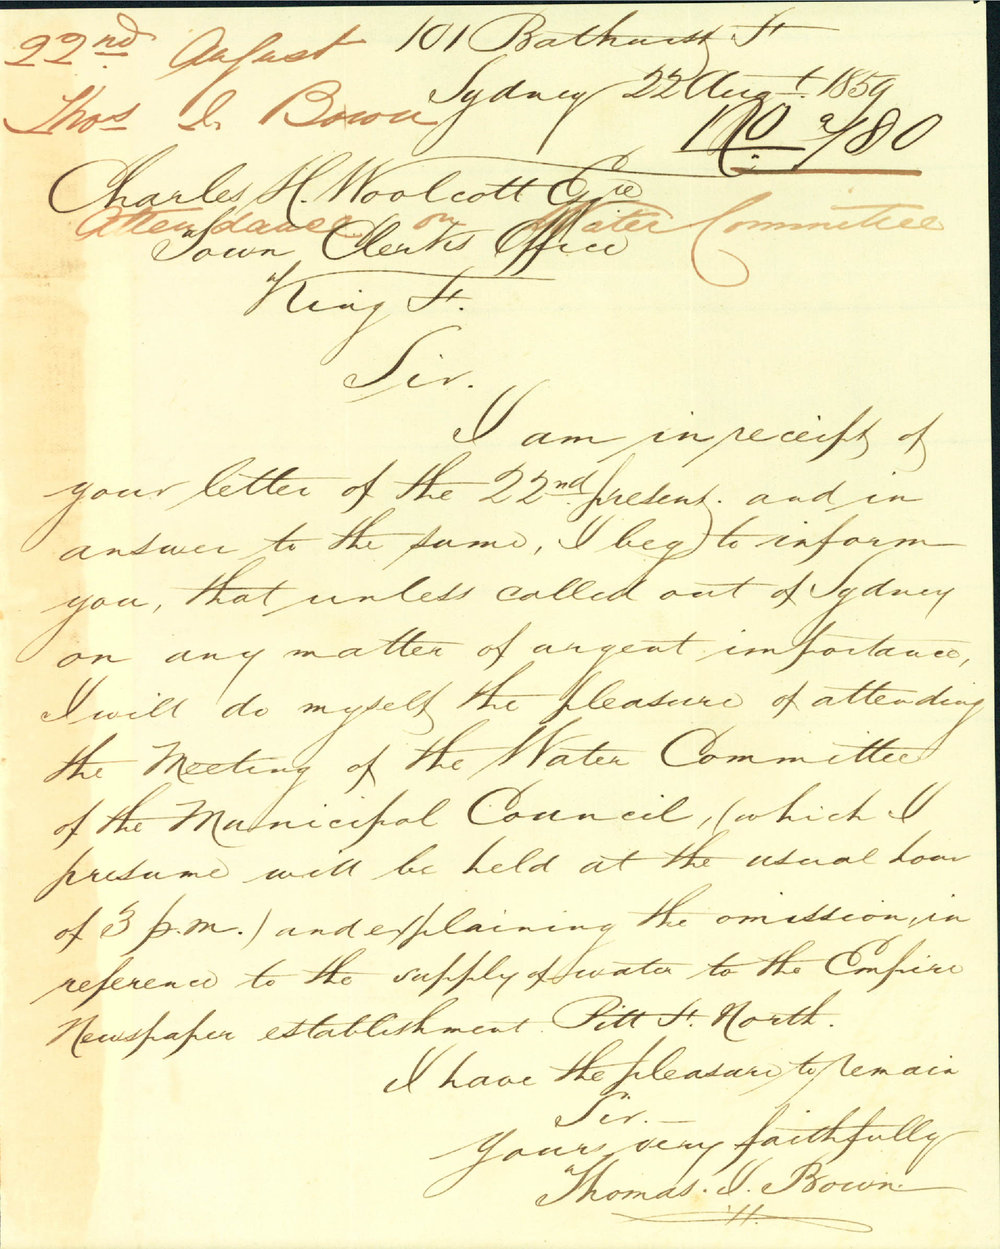 22nd August
Thos I. Bown
101 Bathurst St
Sydney 22 Augt. 1859
No 9/180
Charles H. Woolcott Esqre
Attendance on Water Committee
Town Clerks Office
King St.
Sir.
I am in receipt of
your letter of the 22nd present. and in
answer to the same, I beg to inform
you, that unless called out of Sydney
on any matter of urgent importance,
I will do myself the pleasure of attending
the Meeting of the Water Committee
of the Municipal Council, (which I
presume will be held at the usual hour
of 3 p.m.) and explaining the omission, in
reference to the supply of water to the Empire
Newspaper establishment Pitt St. North.
I have the pleasure to remain
Sir.
Yours very faithfully
Thomas. I. Bown